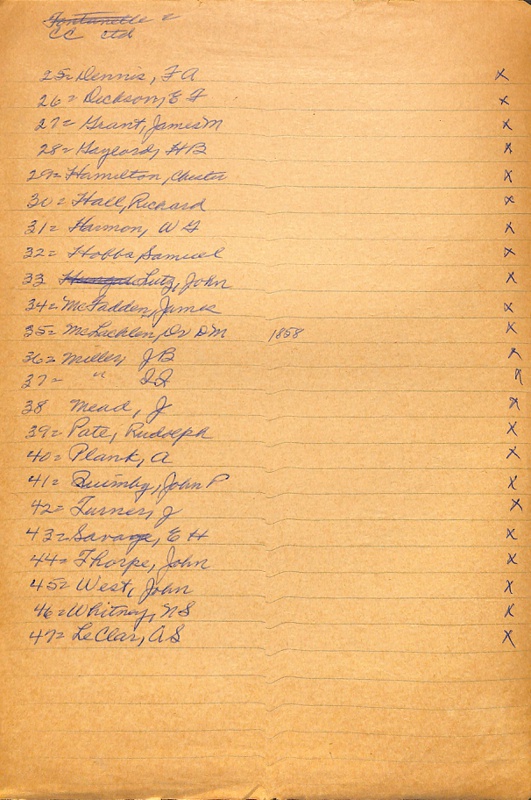 Fontanelle =
CC ctd
25= Dennis, F A x
26= Dickson, E F x
27= Grant, James M x
28= Gaylord, H B x
29= Hamilton, Chester x
30= Hall, Richard x
31= Harmon, W G x
32= Hobbs, Samuel x
33 Lutz, John x
34= McFadden, James x
35= McLachlen, Dr D M 1858 x
36= Miller, J B x
37= " x
38 Mead, J x
39= Pate, Rudolph x
40= Plank, A x
41= Quimby, John P x
42= Turner, J x
43= Savage, E H x
44= Thorpe, John x
45= West, John x
46= Whitney, N S x
47= LeClar, A S x